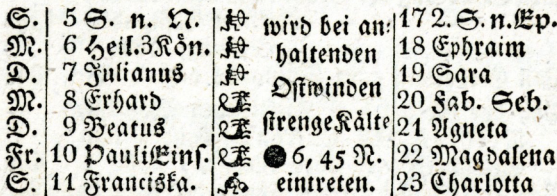 S. 5 S. n. N. wird bei an: 17 2. S. n. Ep.
M. 6 Heil. 3 Kön. haltenden 18 Ephraim
D. 7 Julianus Ostwinden 19 Sara
M. 8 Erhard strenge Kälte 20 Fab. Seb.
D. 9 Beatus 6, 45 N. 21 Agneta
Fr. 10 Pauli Eins. eintreten. 22 Magdalena
S. 11 Franciska. 23 Charlotta